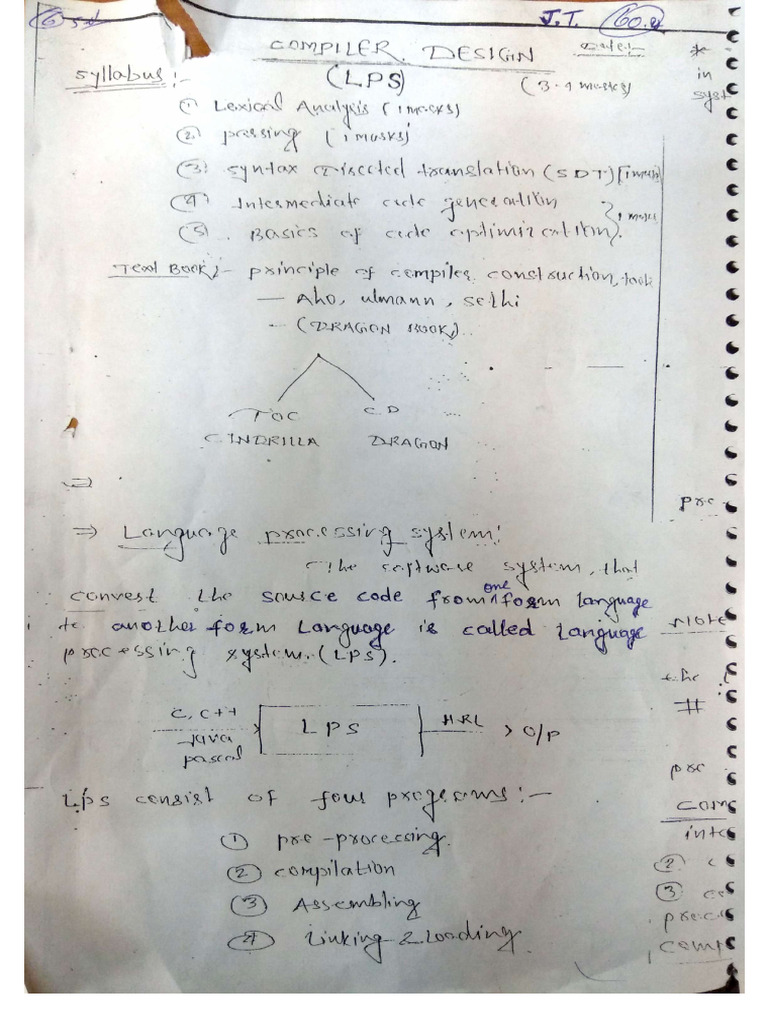 J.T.
COMPILER DESIGN Date:-
Syllabus:- (LPS) (3-4 marks)
① Lexical Analysis (1 marks)
② parsing (1 marks)
③ syntax Directed translation (SDT) [1 mark]
④ Intermediate code generation
⑤ Basics of code optimization } 1 marks
Text Book:- principle of compiler construction, tools
— Aho, ulmann, sethi
- (DRAGON BOOK)
TOC CD
CINDRILLA DRAGON
⇒
⇒ Language processing system:
The software system, that
convert the source code from one form language
to another form Language is called Language
processing system. (LPS).
C, C++
Java
pascal
LPS
> O/P
LPS consist of four programs:-
① pre-processing.
② compilation
③ Assembling
④ Linking & Loading.
*
in
syst
pre
Note
the
#
pre
com
inte
② c
③
prec
comp